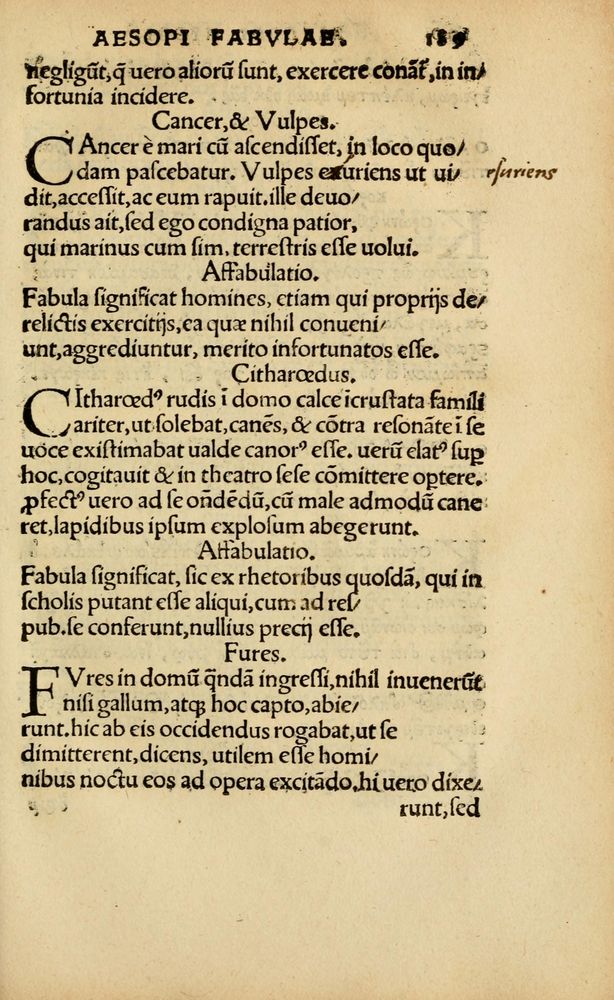 AESOPI FABVLAE. 189
negligūt, q̃ uero aliorū sunt, exercere conãt᷑, in in/
fortunia incidere.
Cancer, & Vulpes.
CAncer è mari cū ascendisset, in loco quo/
dam pascebatur. Vulpes esuriens ut ui/ esuriens
dit, accessit, ac eum rapuit. ille deuo/
randus ait, sed ego condigna patior,
qui marinus cum sim, terrestris esse uolui.
Affabulatio.
Fabula significat homines, etiam qui proprijs de/
relictis exercitijs, ea quæ nihil conueni/
unt, aggrediuntur, merito infortunatos esse.
Citharœdus.
CItharœdꝰ rudis ī domo calce īcrustata famili
ariter, ut solebat, canēs, & cōtra resonāte ī se
uoce existimabat ualde canorꝰ esse. uerū elatꝰ suꝑ
hoc, cogitauit & in theatro sese cōmittere oṗtere.
ꝓfectꝰ uero ad se ondēdū, cū male admodū cane
ret, lapidibus ipsum explosum abegerunt.
Affabulatio.
Fabula significat, sic ex rhetoribus quosdā, qui in
scholis putant esse aliqui, cum ad res/
pub. se conferunt, nullius precij esse.
Fures.
FVres in domū q̄ndā ingressi, nihil inuenerūt
nisi gallum, atqꝫ hoc capto, abie/
runt. hic ab eis occidendus rogabat, ut se
dimitterent, dicens, utilem esse homi/
nibus noctu eos ad opera excitādo. hi uero dixe/
runt, sed